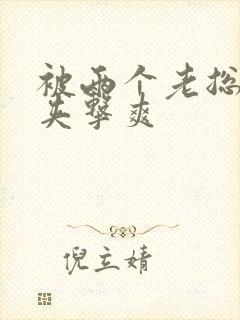 被两个老总
夹击爽
倪立婧